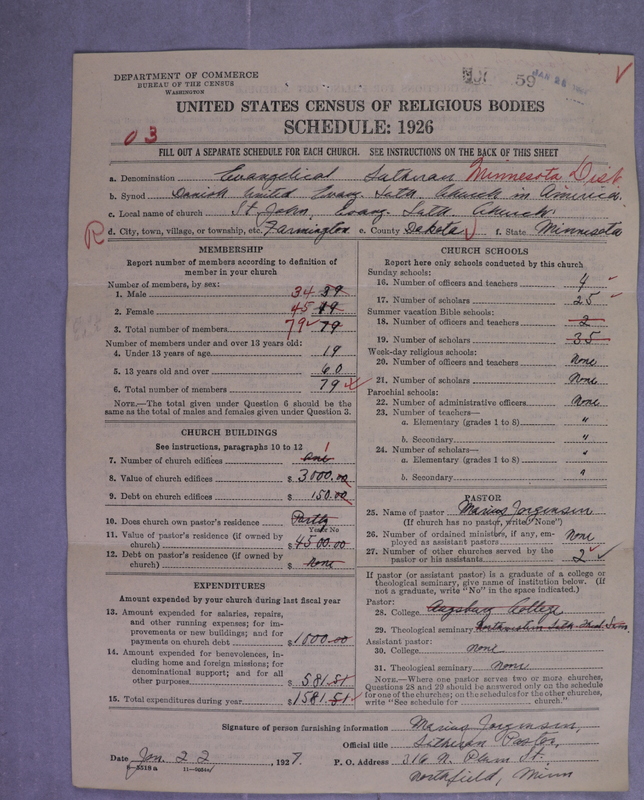 DEPARTMENT OF COMMERCE
BUREAU OF THE CENSUS
WASHINGTON
59 JAN 26
UNITED STATES CENSUS OF RELIGIOUS BODIES
SCHEDULE: 1926
03
FILL OUT A SEPARATE SCHEDULE FOR EACH CHURCH. SEE INSTRUCTIONS ON THE BACK OF THIS SHEET
a. Denomination Evangelical Lutheran Minnesota Dist
b. Synod Danish United Evang. Luth. Church in America.
c. Local name of church St. John, Evang. Luth. Church.
R d. City, town, village, or township, etc. Farmington e. County Dakota f. State Minnesota
MEMBERSHIP
Report number of members according to definition of
member in your church
Number of members, by sex:
1. Male 34 39
2. Female 45
3. Total number of members 79 79
Number of members under and over 13 years old:
4. Under 13 years of age 19
5. 13 years old and over 60
6. Total number of members 79
NOTE.—The total given under Question 6 should be the
same as the total of males and females given under Question 3.
CHURCH BUILDINGS
See instructions, paragraphs 10 to 12
7. Number of church edifices one 1
8. Value of church edifices $ 3000.00
9. Debt on church edifices $ 150.00
10. Does church own pastor's residence Partly
Yes or No
11. Value of pastor's residence (if owned by
church) $ 4500.00
12. Debt on pastor's residence (if owned by
church) $ none
EXPENDITURES
Amount expended by church during last fiscal year
13. Amount expended for salaries, repairs,
and other running expenses; for im-
provements or new buildings; and for
payments on church debt $ 1000.00
14. Amount expended for benevolences, in-
cluding home and foreign missions; for
denominational support; and for all
other purposes $ 581.51
15. Total expenditures during year $ 1581.51
CHURCH SCHOOLS
Report here only schools conducted by this church
Sunday schools:
16. Number of officers and teachers 4
17. Number of scholars 25
Summer vacation Bible schools:
18. Number of officers and teachers 2
19. Number of scholars 35
Week-day religious schools:
20. Number of officers and teachers None
21. Number of scholars None
Parochial schools:
22. Number of administrative officers None
23. Number of teachers—
a. Elementary (grades 1 to 8) "
b. Secondary "
24. Number of scholars—
a. Elementary (grades 1 to 8) "
b. Secondary "
PASTOR
25. Name of pastor Marius Jorgensen
(If church has no pastor, write "None")
26. Number of ordained ministers, if any, em-
ployed as assistant pastors None
27. Number of other churches served by the
pastor or his assistants 2
If pastor (or assistant pastor) is a graduate of a college or
theological seminary, give name of institution below. (If
not a graduate, write "No" in the space indicated.)
Pastor:
28. College Augsburg College
29. Theological seminary Northwestern Luth. Theol. Sem.
Assistant pastor:
30. College none
31. Theological seminary none
NOTE.—Where one pastor serves two or more churches,
Questions 28 and 29 should be answered only on the schedule
for one of the churches; on the schedules for the other churches,
write "See schedule for church."
Signature of person furnishing information Marius Jorgensen,
Official title Lutheran Pastor,
Date Jan. 22, 1927. P. O. Address 316 N. Plum St.
Northfield, Minn